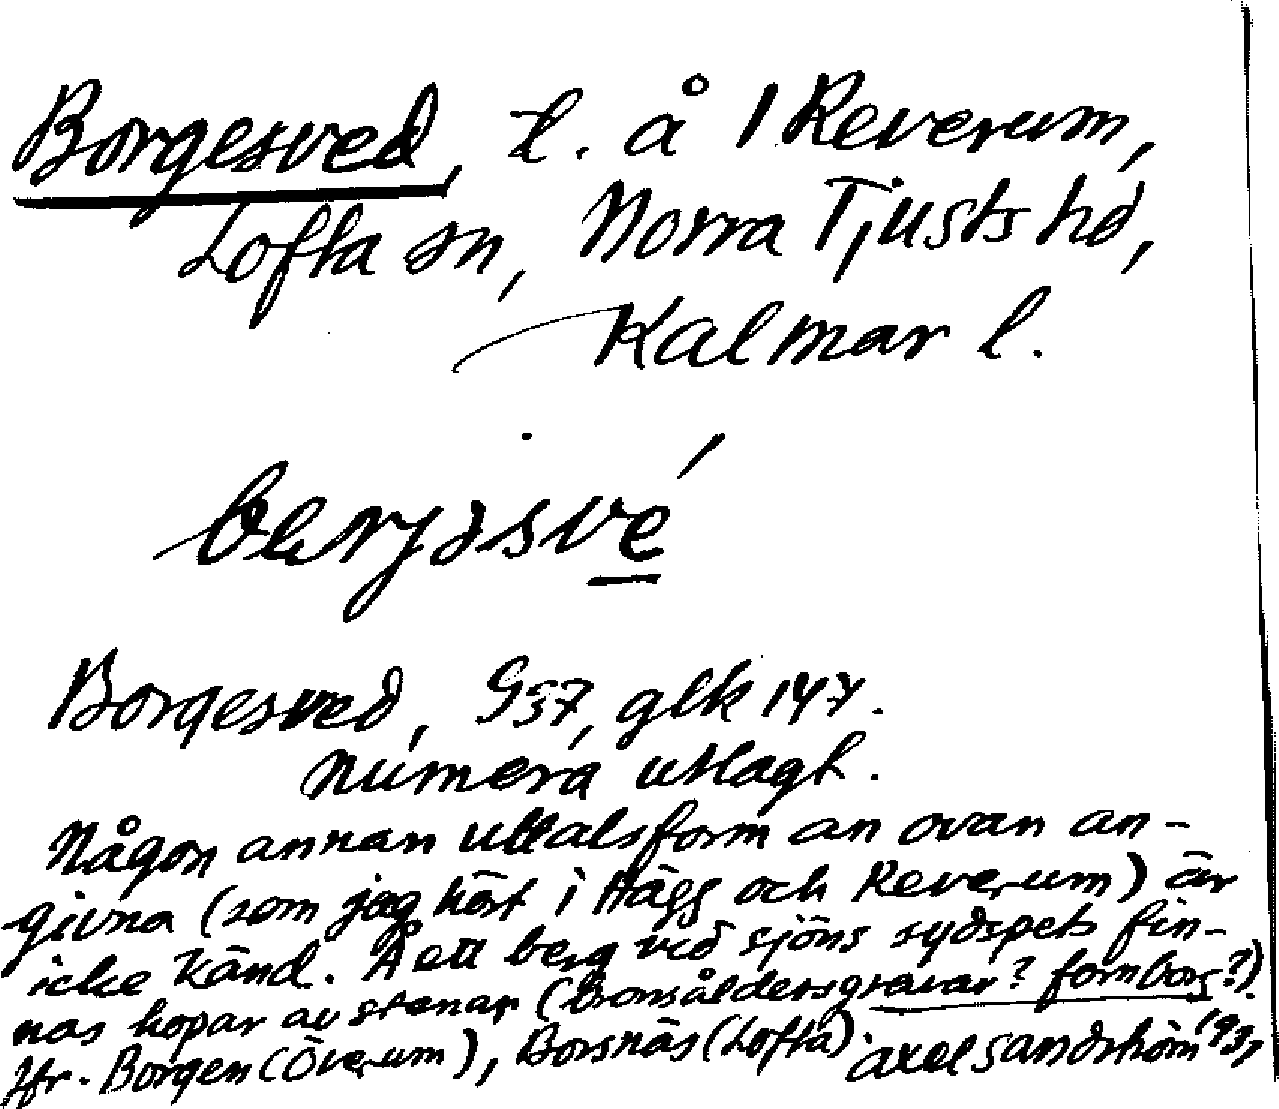 Borgesved, t. å 1 Reverum,
Lofta sn, Norra Tjusts hd,
Kalmar l.
Borgesved, G37, glk 147.
Numera utlagt.
Någon annan uttalsform än ovan an-
givna (som jag hört i Hägg och Reverum) är
icke känd. Å ett berg vid sjöns sydspets fin-
nas högar av stenar (Bronsåldersgravar? fornborg?).
Jfr. Borgen (Överum), Borsnäs (Lofta).